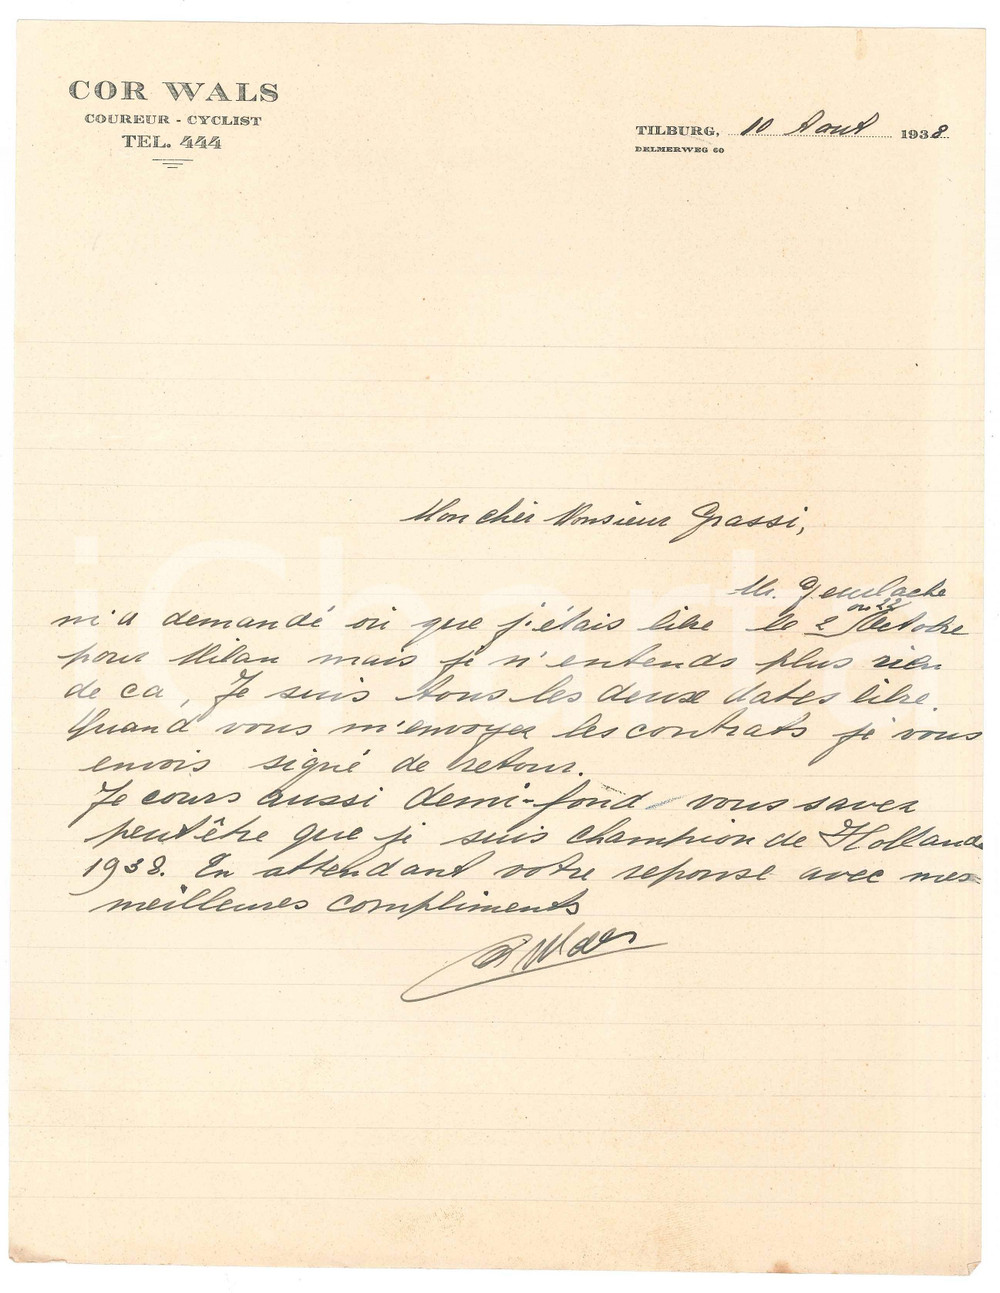 COR WALS
COUREUR - CYCLIST
TEL. 444
TILBURG, 10 Aout 1938.
DELMERWEG 60
Mon cher Monsieur Grassi,
Mr.
m'a demandé ou que j'étais libre le 2 ou 22 Octobre
pour Milan mais je n'entends plus rien
de ca, Je suis tous les deux dates libre.
Quand vous m'envoyez les contrats je vous
envois signé de retour.
Je cours aussi demi-fond vous savez
peutêtre que je suis champion de Hollande
1938. En attendant votre reponse avec mes
meilleures compliments
Cor Wals
iCharta